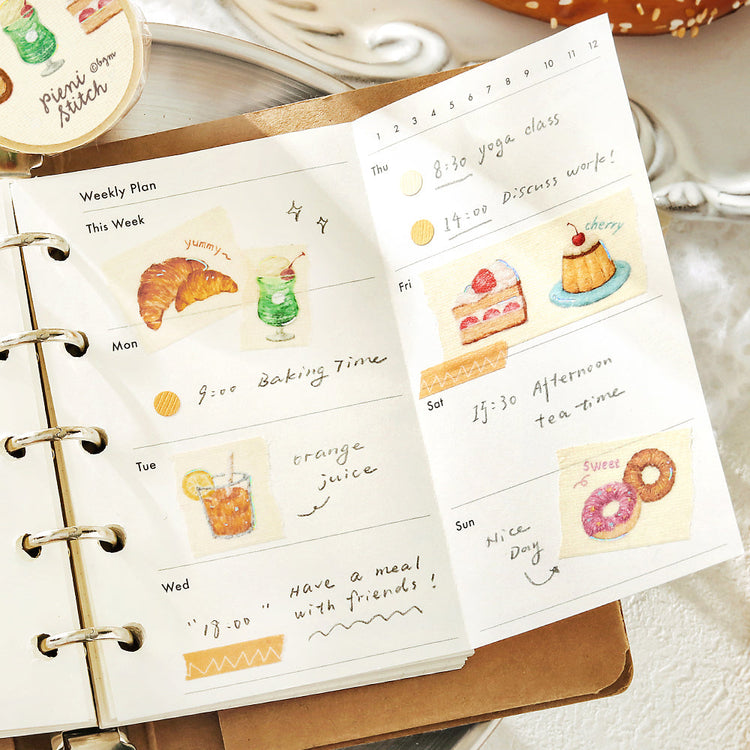 Pieni
Stitch
©bgm
Weekly Plan
This Week
yummy~
Mon
9:00 Baking Time
Tue
orange
juice
Wed
"18:00" Have a meal
with friends!
1 2 3 4 5 6 7 8 9 10 11 12
Thu
8:30 yoga class
14:00 Discuss work!
Fri
cherry
Sat
15:30 Afternoon
tea time
Sun
Nice
Day
sweet